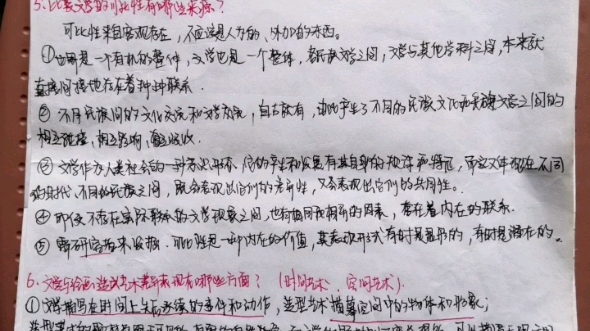 5、比较文学的可比性有哪些来源？
可比性来自客观存在，不应该是人为的、外加的东西。
①世界是一个有机的整体，文学也是一个整体，各民族文学之间，文学与其他学科之间，本来就
直接间接地存在着种种联系.
②不同民族间的文化交流和文学交流，自古就有，由此产生了不同的民族文化和民族文学之间的
相互碰撞，相互影响，吸收.
③文学作为人类社会的一种意识形态，它的产生和发展有其自身的规律和特征，而这又体现在不同
的时代、不同的民族之间，既会表现出它们的差异性，又会表现出它们的共同性。
④即使不存在实际影响的文学现象之间，也有相同或相似的因素，存在着内在的联系.
⑤要研究者来发掘，可比性是一种内在的价值，其表现形式有时是显形的，有时是潜在的。
6、文学与绘画、造型艺术差异表现有哪些方面？（时间艺术、空间艺术）.
①文学描写在时间上先后承续的事件和动作，造型艺术描摹空间中的物体和形象；